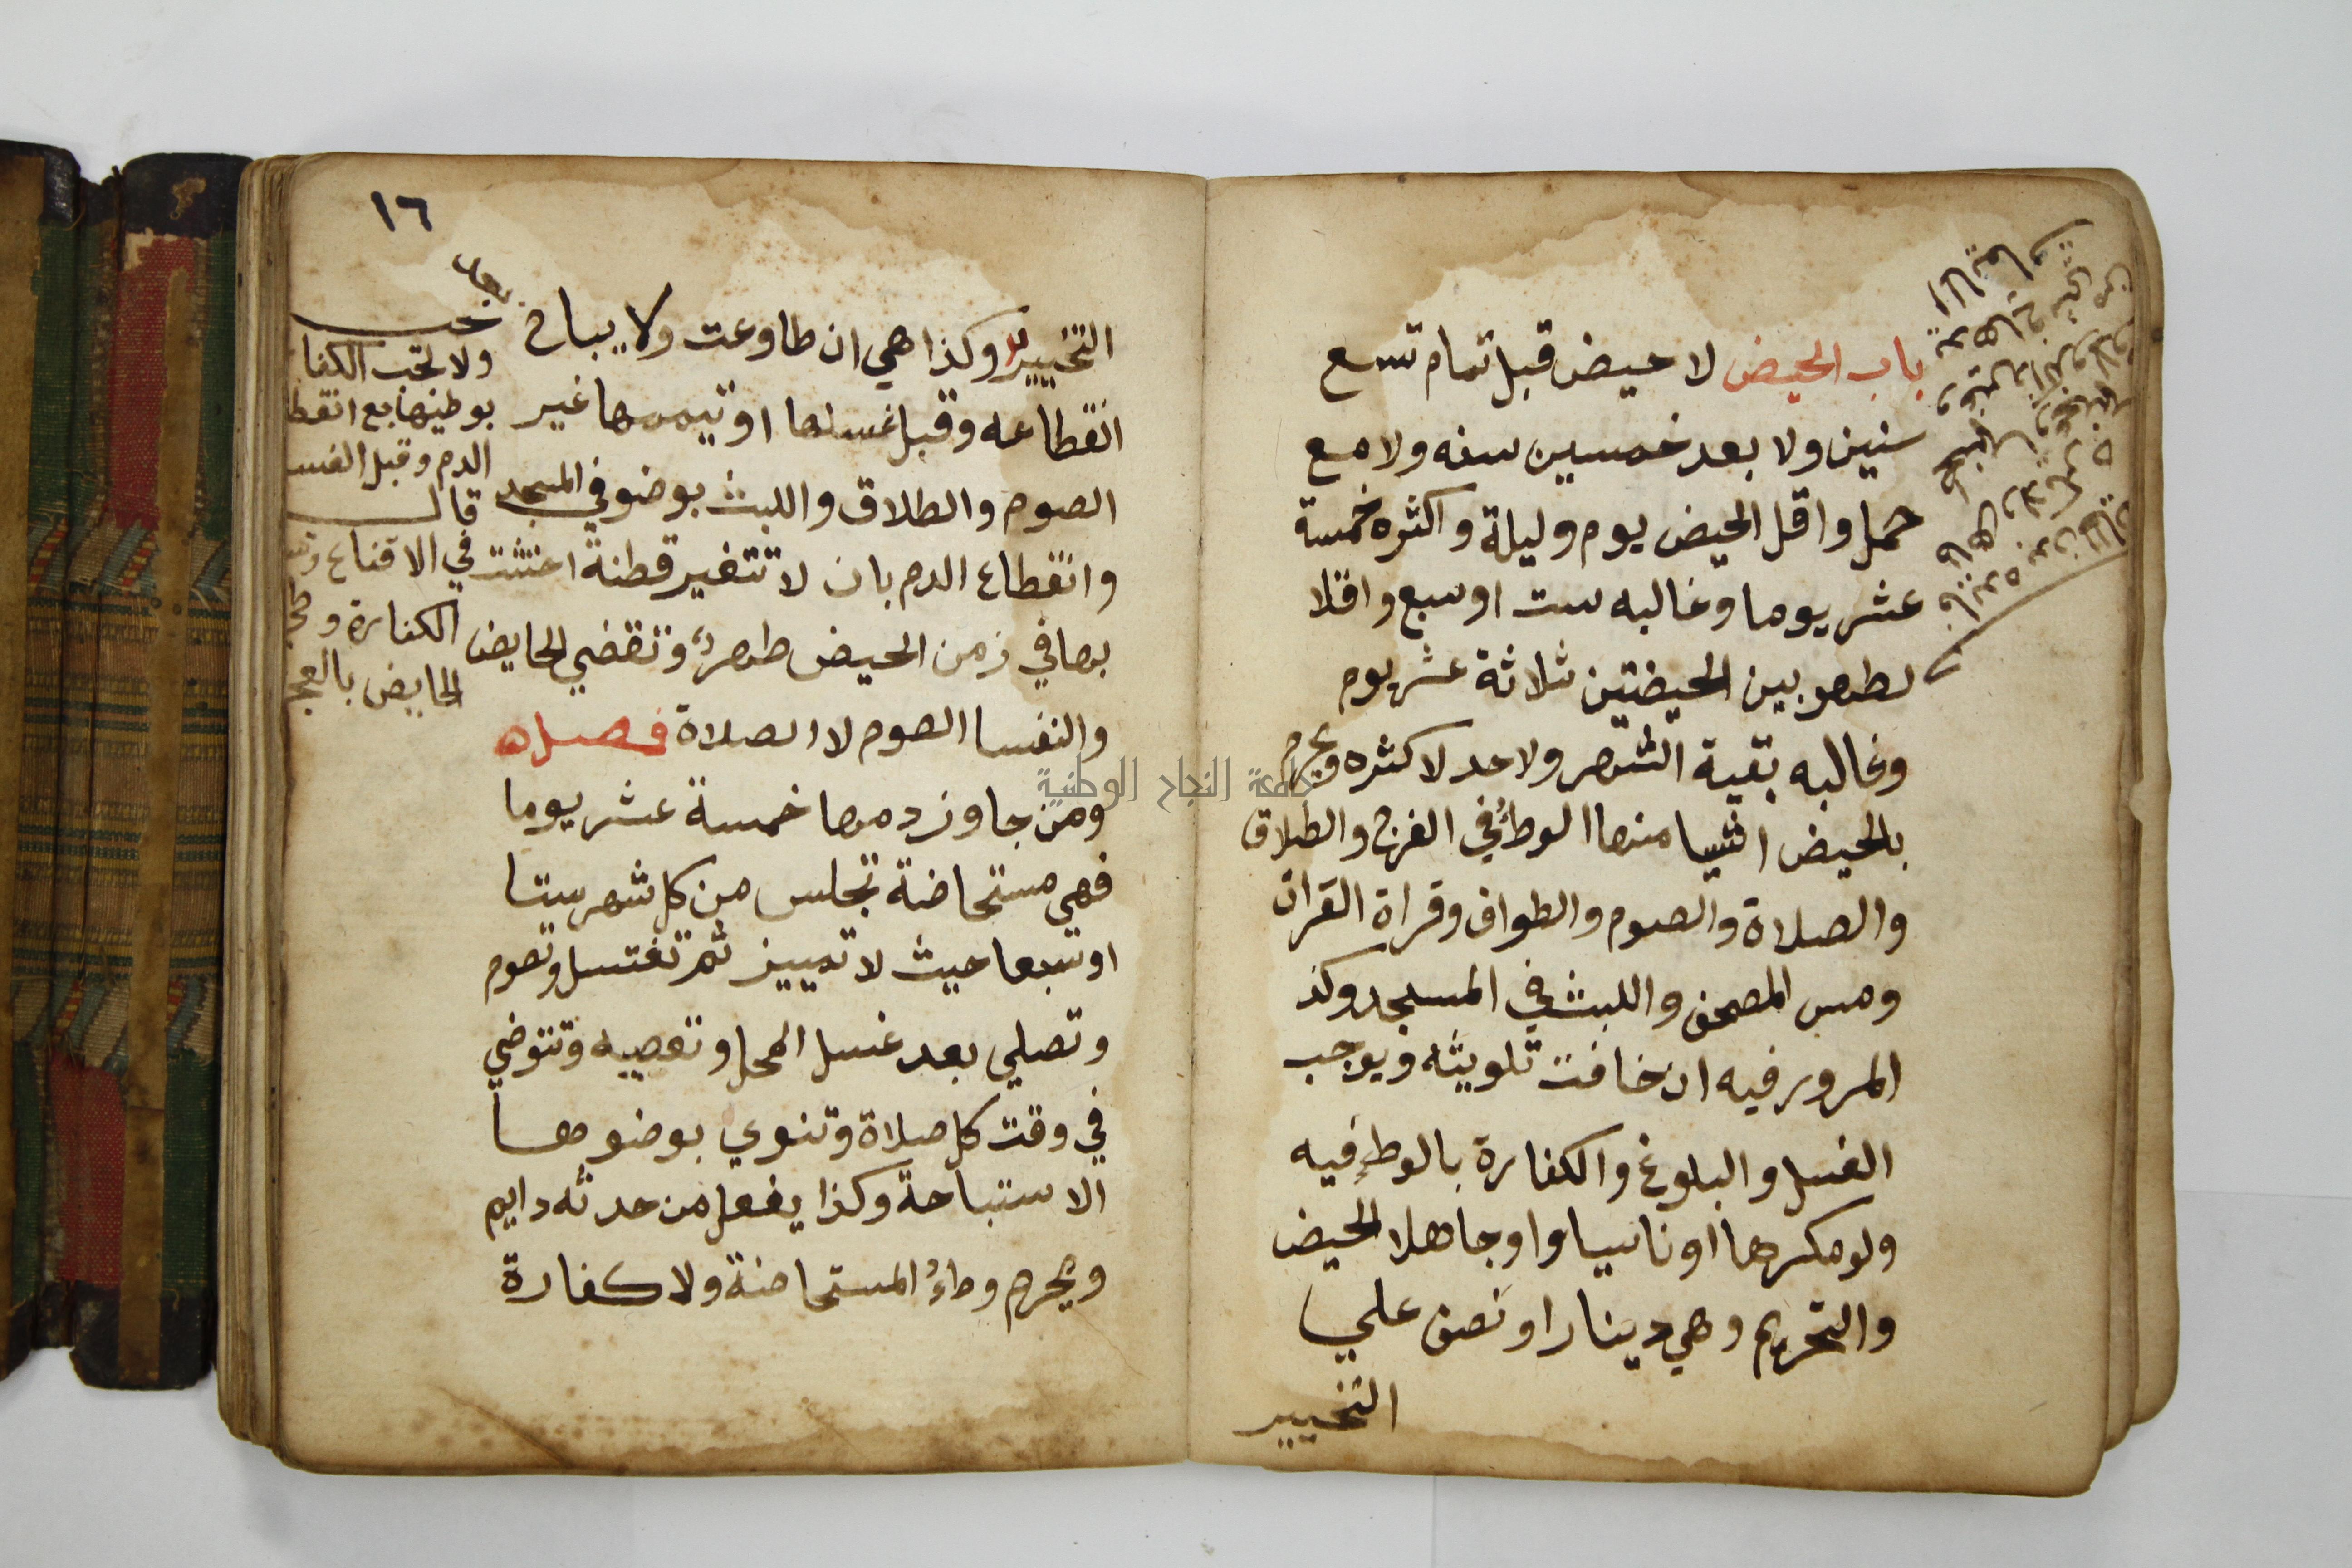 باب الحيض لا حيض قبل تمام تسع
سنين ولا بعد خمسين سنه ولا مع
حمل واقل الحيض يوم وليلة واكثره خمسة
عشر يوما وغالبه ست او سبع واقلا
لطهر بين الحيضتين ثلاثة عشر يوم
وغالبه بقية الشهر ولا حد لاكثره ويحرم
بالحيض اشيا منها الوطؤ في الفرج والطلاق
والصلاة والصوم والطواف وقراة القران
ومس المصحف واللبث في المسجد وكذ
المرور فيه ان خافت تلويثه ويوجب
الغسل والبلوغ والكفارة بالوطء فيه
ولو مكرها او ناسيا او جاهلا الحيض
والتحريم وهي دينار او نصف علي
التخيير
١٦
التخيير وكذا هي ان طاوعت ولا يباح
انقطاعه وقبل غسلها او تيممها غير
الصوم والطلاق واللبث بوضو في المسجد
وانقطاع الدم بان لا تتغير قطنة احتشت
بها في زمن الحيض طهر وتقضي الحايض
والنفسا الصوم لا الصلاة فصل
ومن جاوز دمها خمسة عشر يوما
فهي مستحاضة تجلس من كل شهر ستا
او سبعا حيث لا تمييز ثم تغتسل وتصوم
وتصلي بعد غسل المحل وتعصيبه وتتوضي
في وقت كل صلاة وتنوي بوضوها
الاستباحة وكذا يفعل من حدثه دايم
ويحرم وطء المستحاضة ولا كفارة
ولا تجب الكفا
بوطئها بع انقطا
الدم وقبل الغسـ
قال
في الاقناع
الكفارة
الحايض بالعجـ
جامعة النجاح الوطنية